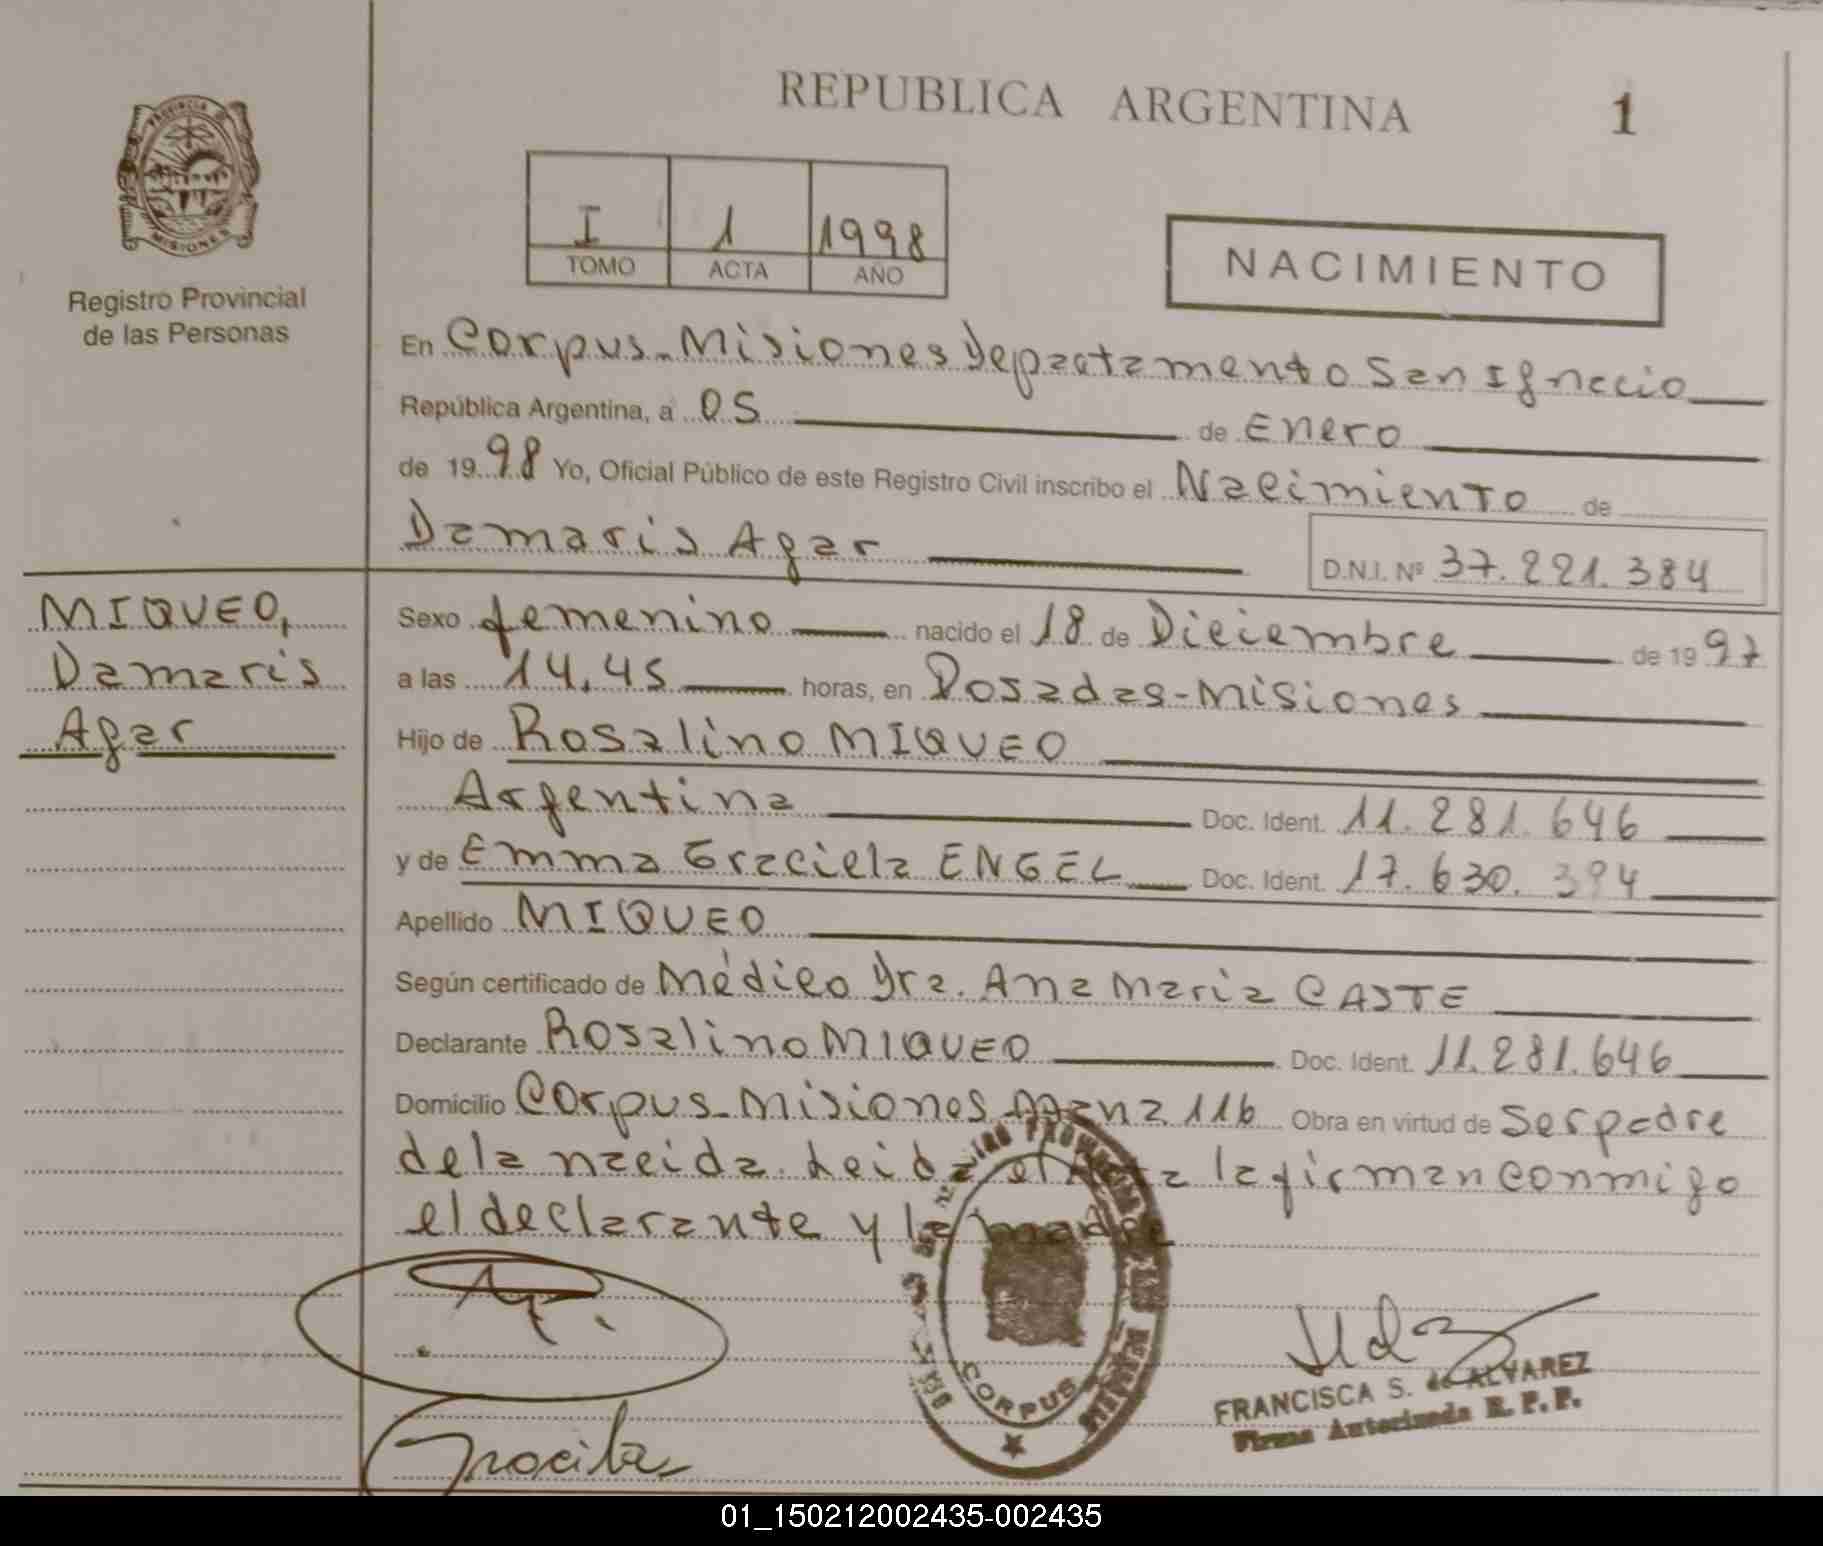 REPUBLICA ARGENTINA
1
PROVINCIA D
MISIONES
Registro Provincial
de las Personas
I 1 1998
TOMO ACTA AÑO
NACIMIENTO
En Corpus-Misiones Departamento San Ignacio
República Argentina, a 05 de Enero
de 1998 Yo, Oficial Público de este Registro Civil inscribo el Nacimiento de
Damaris Agar
D.N.I. Nº 37.221.384
MIQUEO,
Damaris
Agar
Sexo femenino nacido el 18 de Dieciembre de 1997
a las 14,45 horas, en Posadas-Misiones
Hijo de Rosalino MIQUEO
Argentina Doc. Ident. 11.281.646
y de Emma Graciela ENGEL Doc. Ident. 17.630.394
Apellido MIQUEO
Según certificado de Médico Dra. Ana Maria CASTE
Declarante Rosalino MIQUEO Doc. Ident. 11.281.646
Domicilio Corpus-Misiones Manz. 116 Obra en virtud de Ser padre
de la nacida. Leida el acta la firman conmigo
el declarante y la madre
CORPUS
FRANCISCA S. de ALVAREZ
Firma Autorizada R. P. P.
01_150212002435-002435